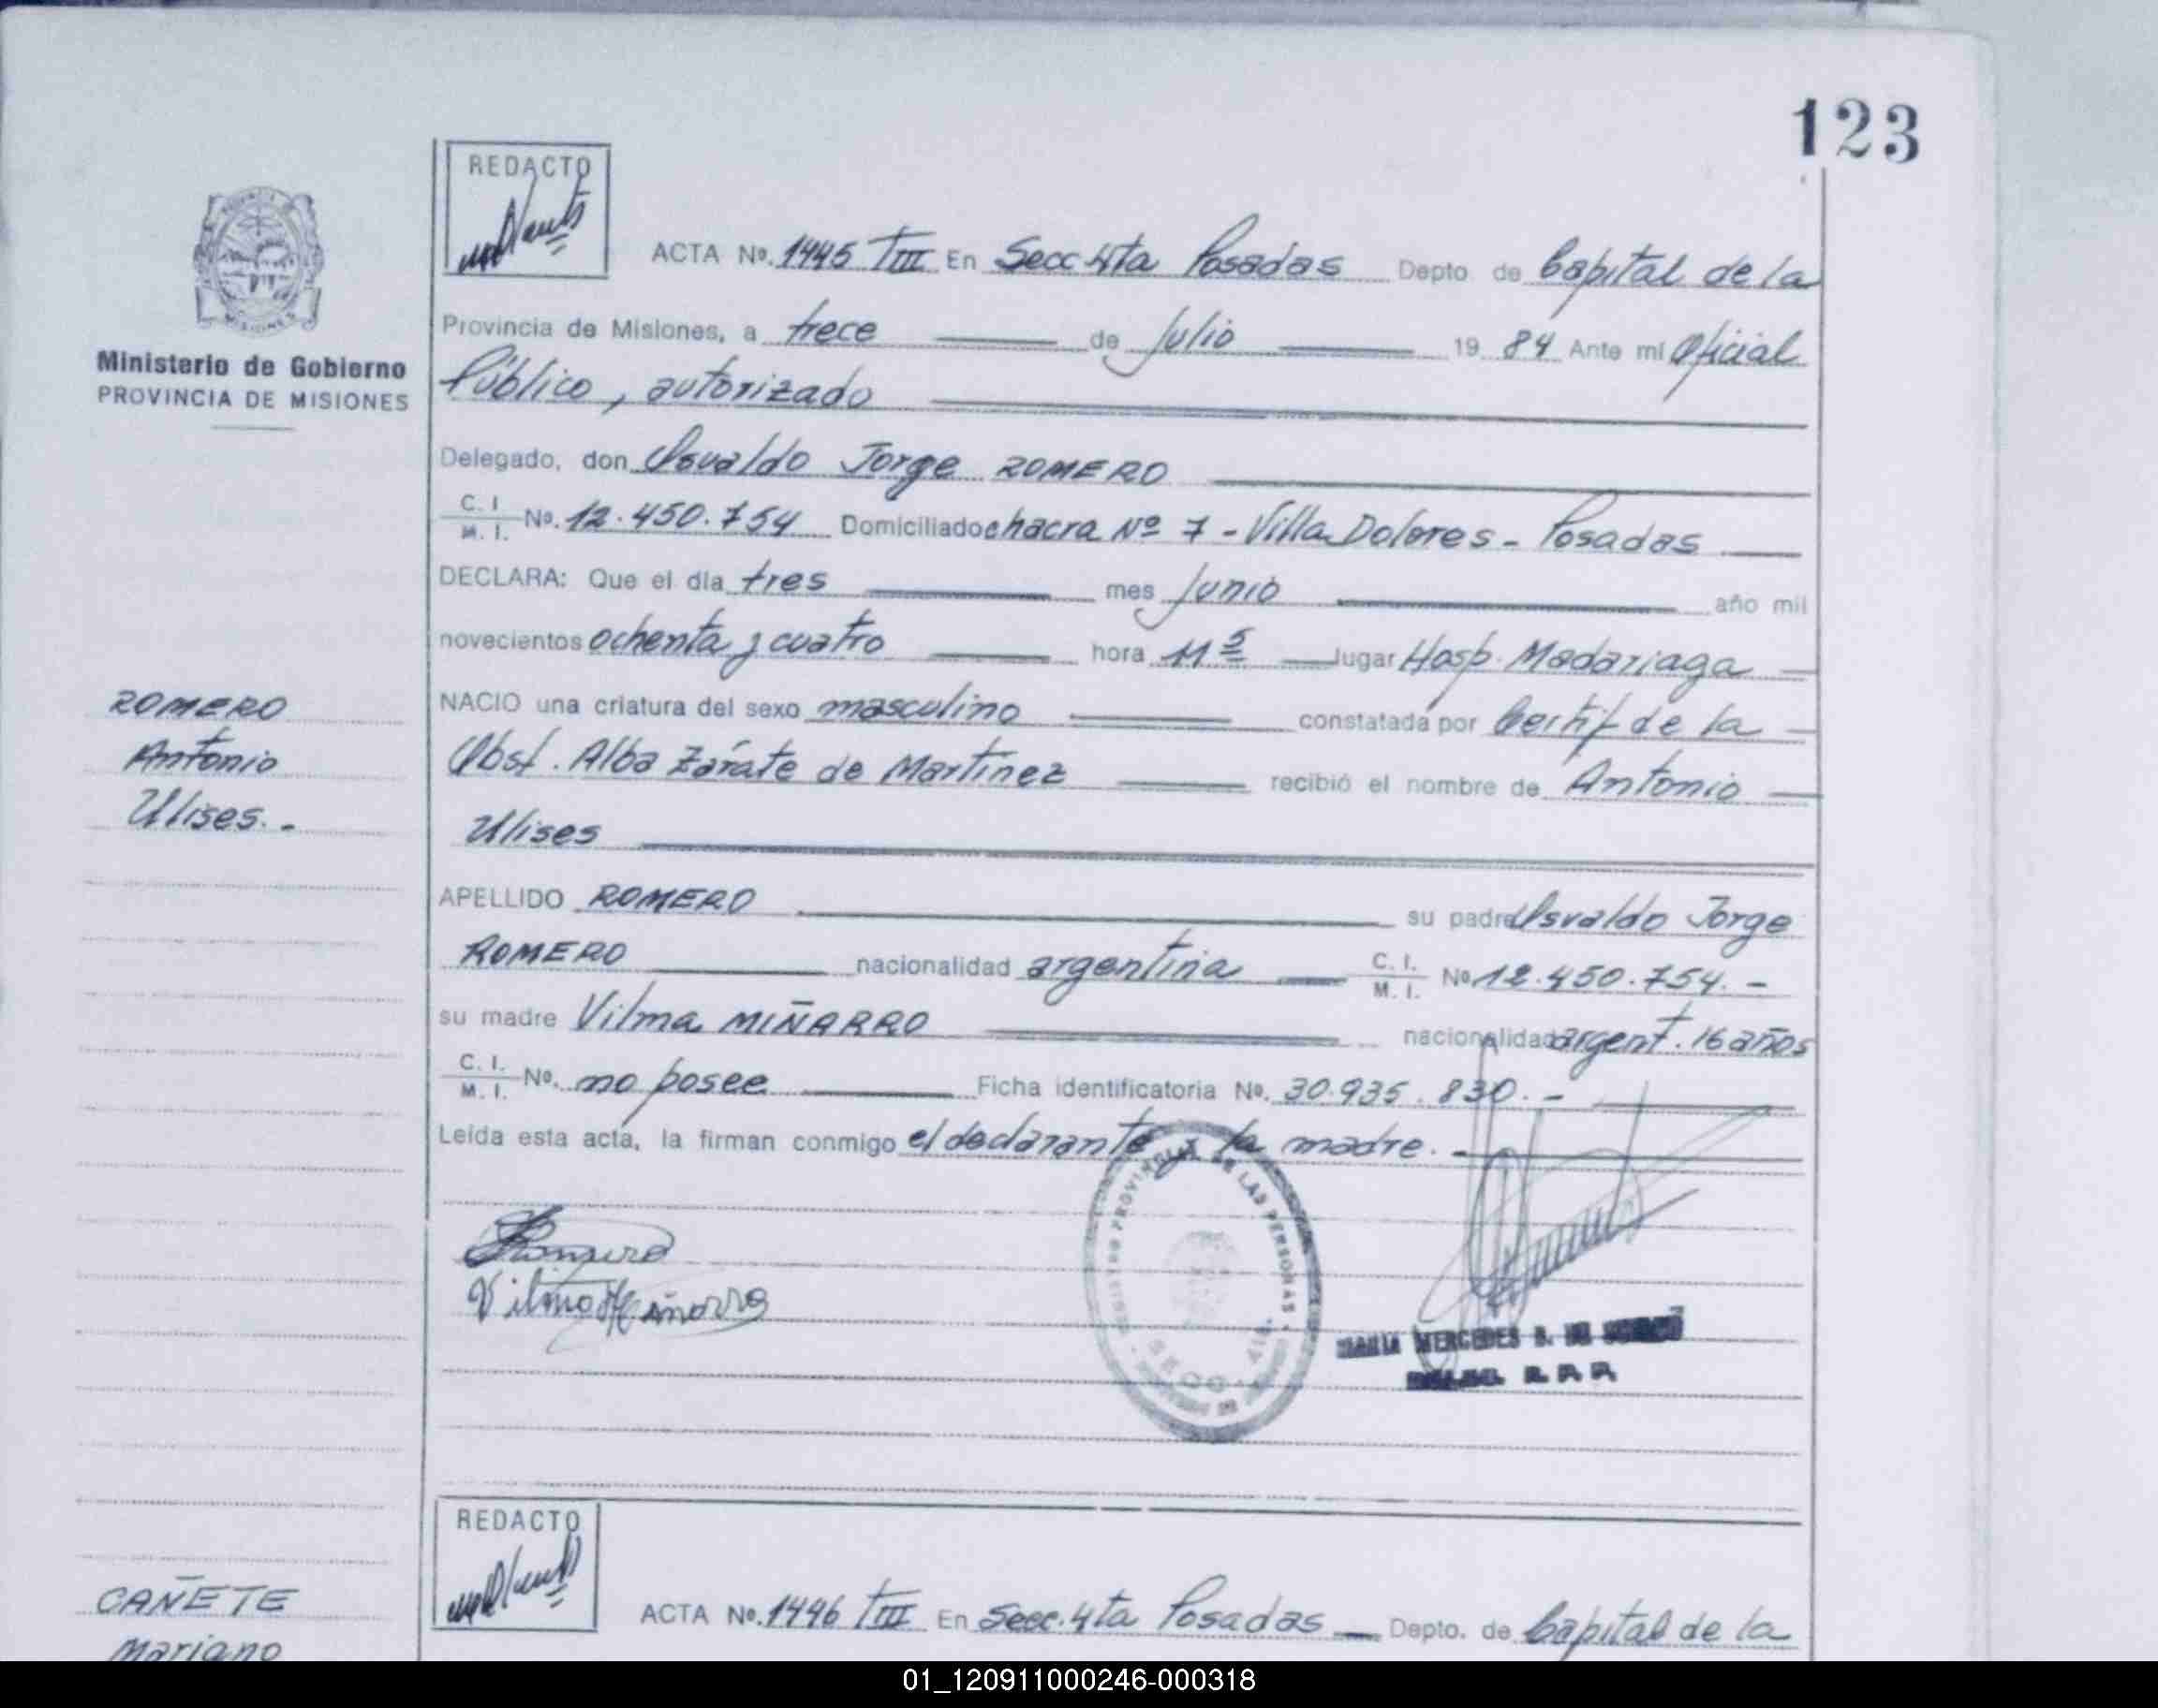 123
REDACTO
ACTA Nº. 1445 TIII En Secc 4ta Posadas Depto de Capital de la
Provincia de Misiones, a trece de Julio 19 84 Ante mi Oficial
Ministerio de Gobierno
PROVINCIA DE MISIONES
Público, autorizado
Delegado, don Osvaldo Jorge ROMERO
C. I. M. I. Nº. 12.450.754 Domiciliado chacra Nº 7 - Villa Dolores - Posadas
DECLARA: Que el día tres mes Junio año mil
novecientos ochenta y cuatro hora 11 5 lugar Hosp. Madariaga
ROMERO
Antonio
Ulises.-
NACIO una criatura del sexo masculino constatada por Certif de la
Obst. Alba Zárate de Martínez recibió el nombre de Antonio
Ulises
APELLIDO ROMERO su padre Osvaldo Jorge
ROMERO nacionalidad argentina C. I. M. I. Nº 12.450.754.-
su madre Vilma MIÑARRO nacionalidad argent. 16 años
C. I. M. I. Nº. no posee Ficha identificatoria Nº. 30.935.830.-
Leída esta acta, la firman conmigo el declarante y la madre.-
Romero
Vilma Miñarro
PROVINCIAL DE LAS PERSONAS
SECC. 4ta.
MARIA MERCEDES B. DE
R. P. P.
REDACTO
CAÑETE
Mariano
ACTA Nº. 1446 TIII En Secc. 4ta Posadas Depto. de Capital de la
01_120911000246-000318